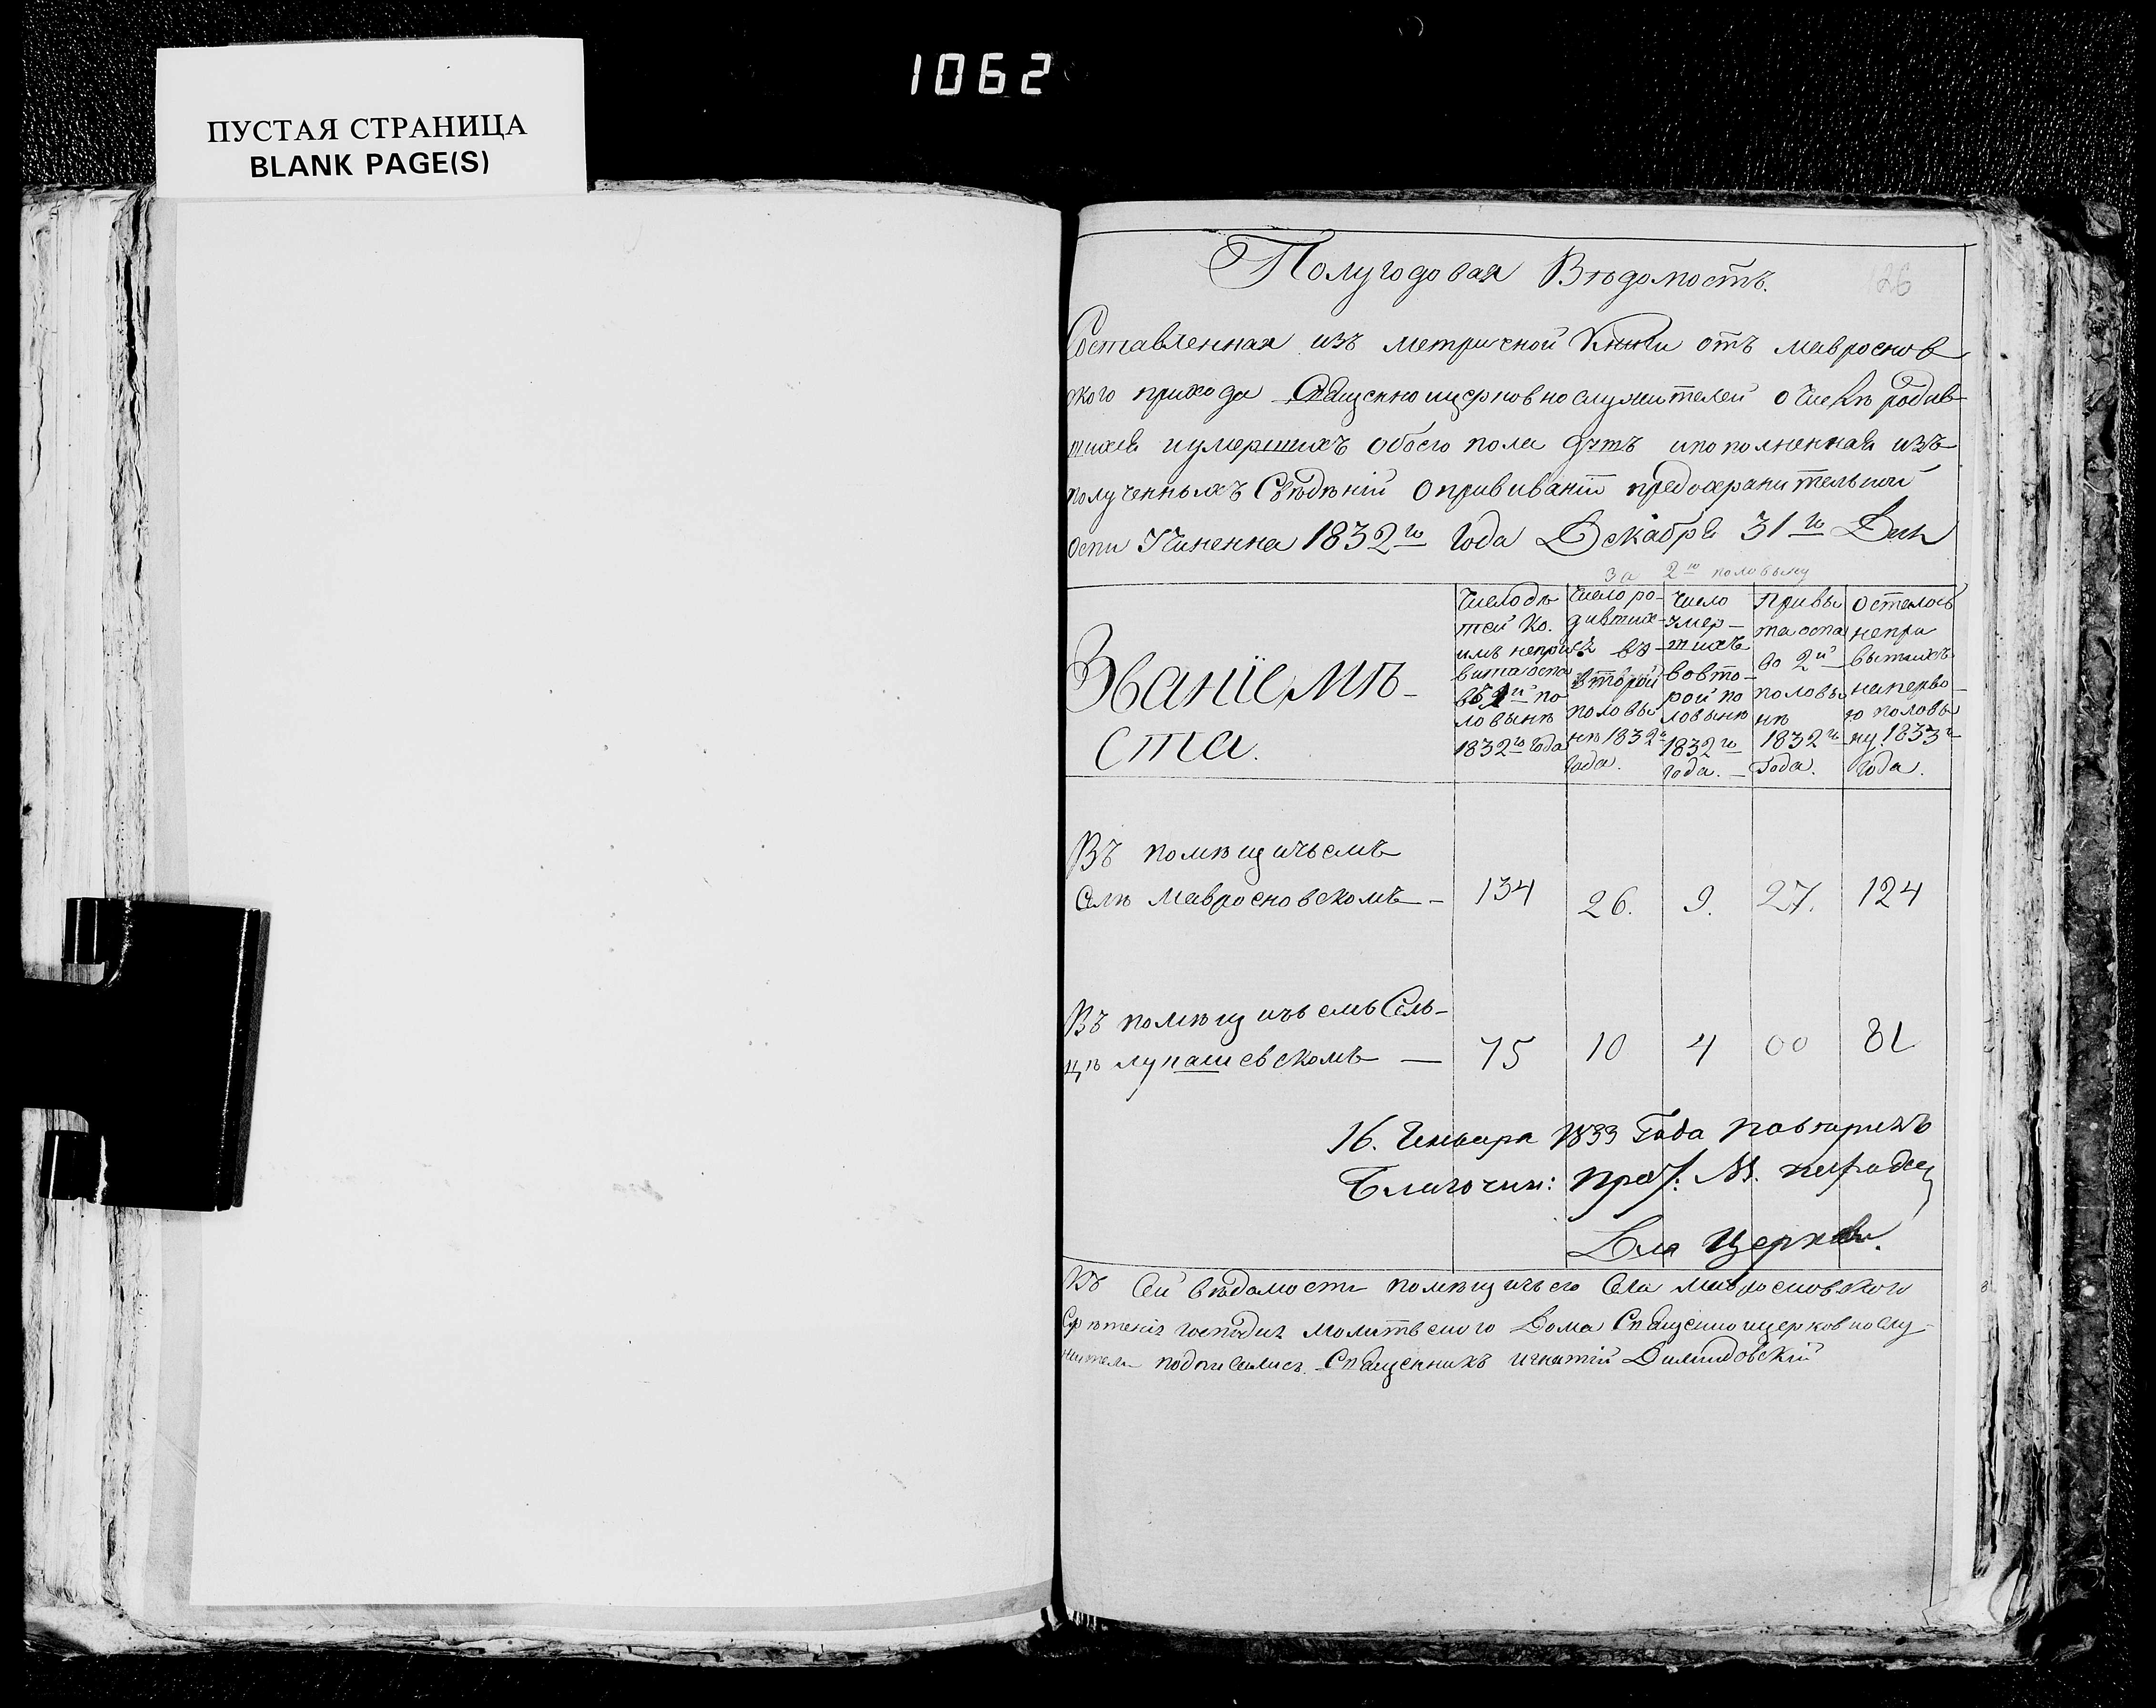 1062
ПУСТАЯ СТРАНИЦА
BLANK PAGE(S)
26
Полугодовая Вѣдомость.
Составленная изъ метричной Книги отъ мавроснов
ского прихода Священноицерковнослужителей о числѣ родив-
шихся иумершихъ обоего пола дѣтъ ипополненная изъ
полученныхъ Свѣдѣній Опрививаніи предохранительной
оспи Учиненна 1832го Года Декабря 31го Дня
За 2ю половыну
Званіе мѣ-
ста.
Число дѣ
тей ко.
имъ непри
вита оспа
въ 1й по
ловынѣ
1832го Года
Число ро-
дивших-
ся въ
второй
половы
нѣ 1832го
Года.
Число
умер-
шихъ
вовто-
рой по
ловынѣ
1832го
Года.
Привы
та оспа
во 2й
половы
нѣ
1832го
Года.
Осталось
непри
вытыхъ
наперво
ю половы
ну 1833го
Года.
Въ помѣщичьемъ
Селѣ Мавросновскомъ - 134 26. 9. 27. 124
Въ помѣщичьемъ Сель-
цѣ лупашевскомъ — 75 10 4 00 81
16. Генваря 1833 Года
Благочин: М.
Для Церкви.
Къ Сей вѣдомости помѣщичьего Села Мавросновского
Срѣтенія господня молитвеного Дома Священноицерковнослу-
жители подписались. Священникъ игнатій